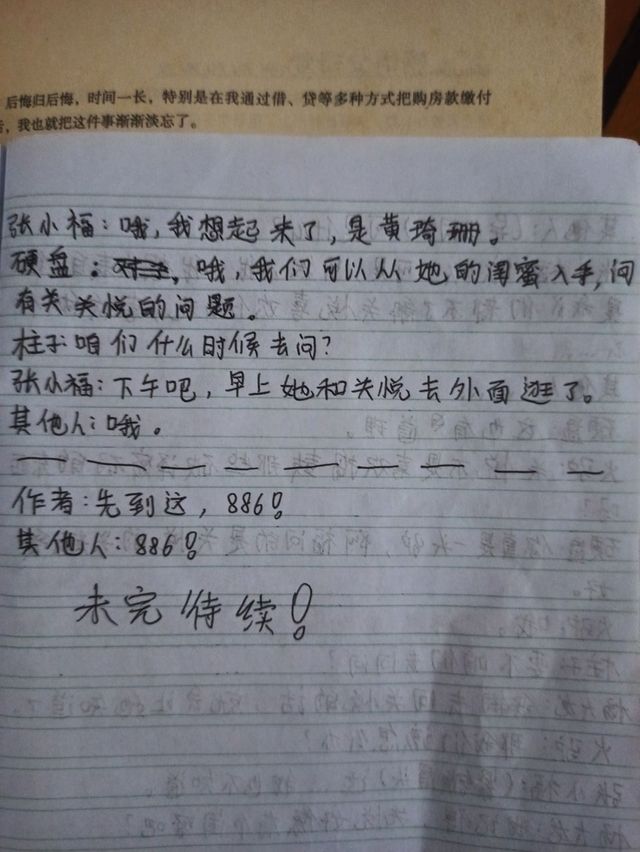 后悔归后悔，时间一长，特别是在我通过借、贷等多种方式把购房款缴付
，我也就把这件事渐渐淡忘了。
张小福：哦，我想起来了，是黄琦珊。
硬盘：哦，我们可以从她的闺蜜入手，问
有关关悦的问题。
柱子：咱们什么时候去问？
张小福：下午吧，早上她和关悦去外面逛了。
其他人：哦。
作者：先到这，886！
其他人：886！
未完待续！